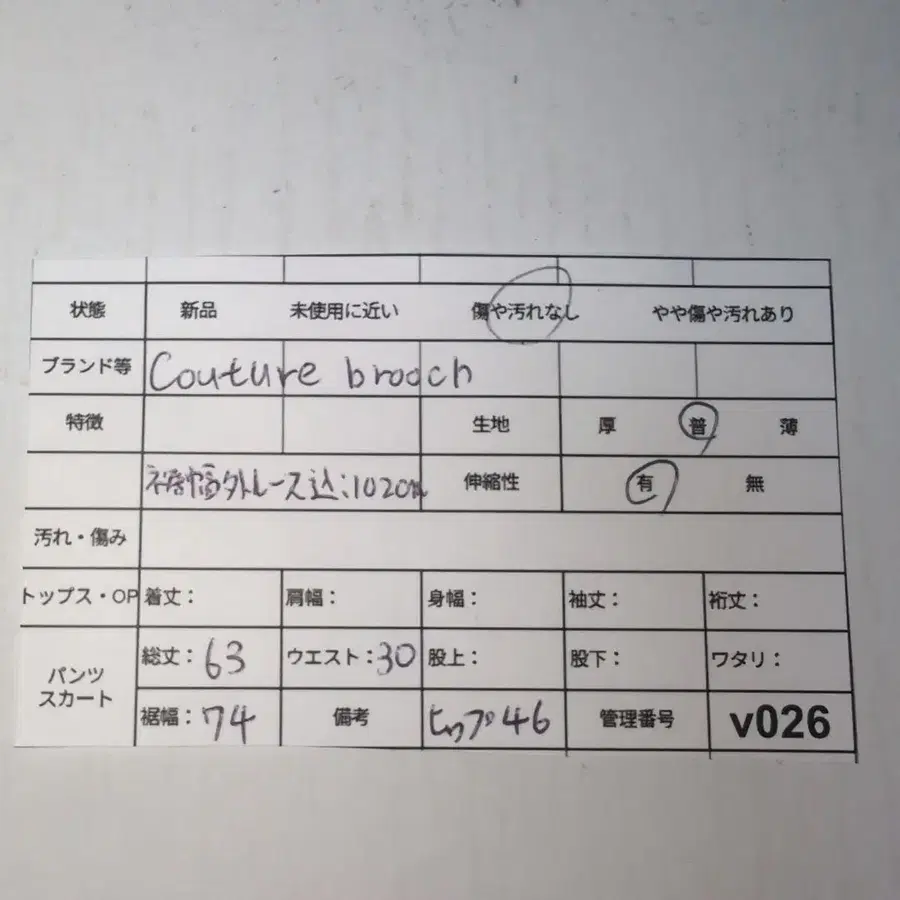 状態 新品 未使用に近い 傷や汚れなし やや傷や汚れあり
ブランド等 Couture brooch
特徴 生地 厚 普 薄
裾幅外レース込:102cm 伸縮性 有 無
汚れ・傷み
トップス・OP 着丈: 肩幅: 身幅: 袖丈: 裄丈:
パンツ スカート 総丈:63 ウエスト:30 股上: 股下: ワタリ:
裾幅:74 備考 ヒップ46 管理番号 v026